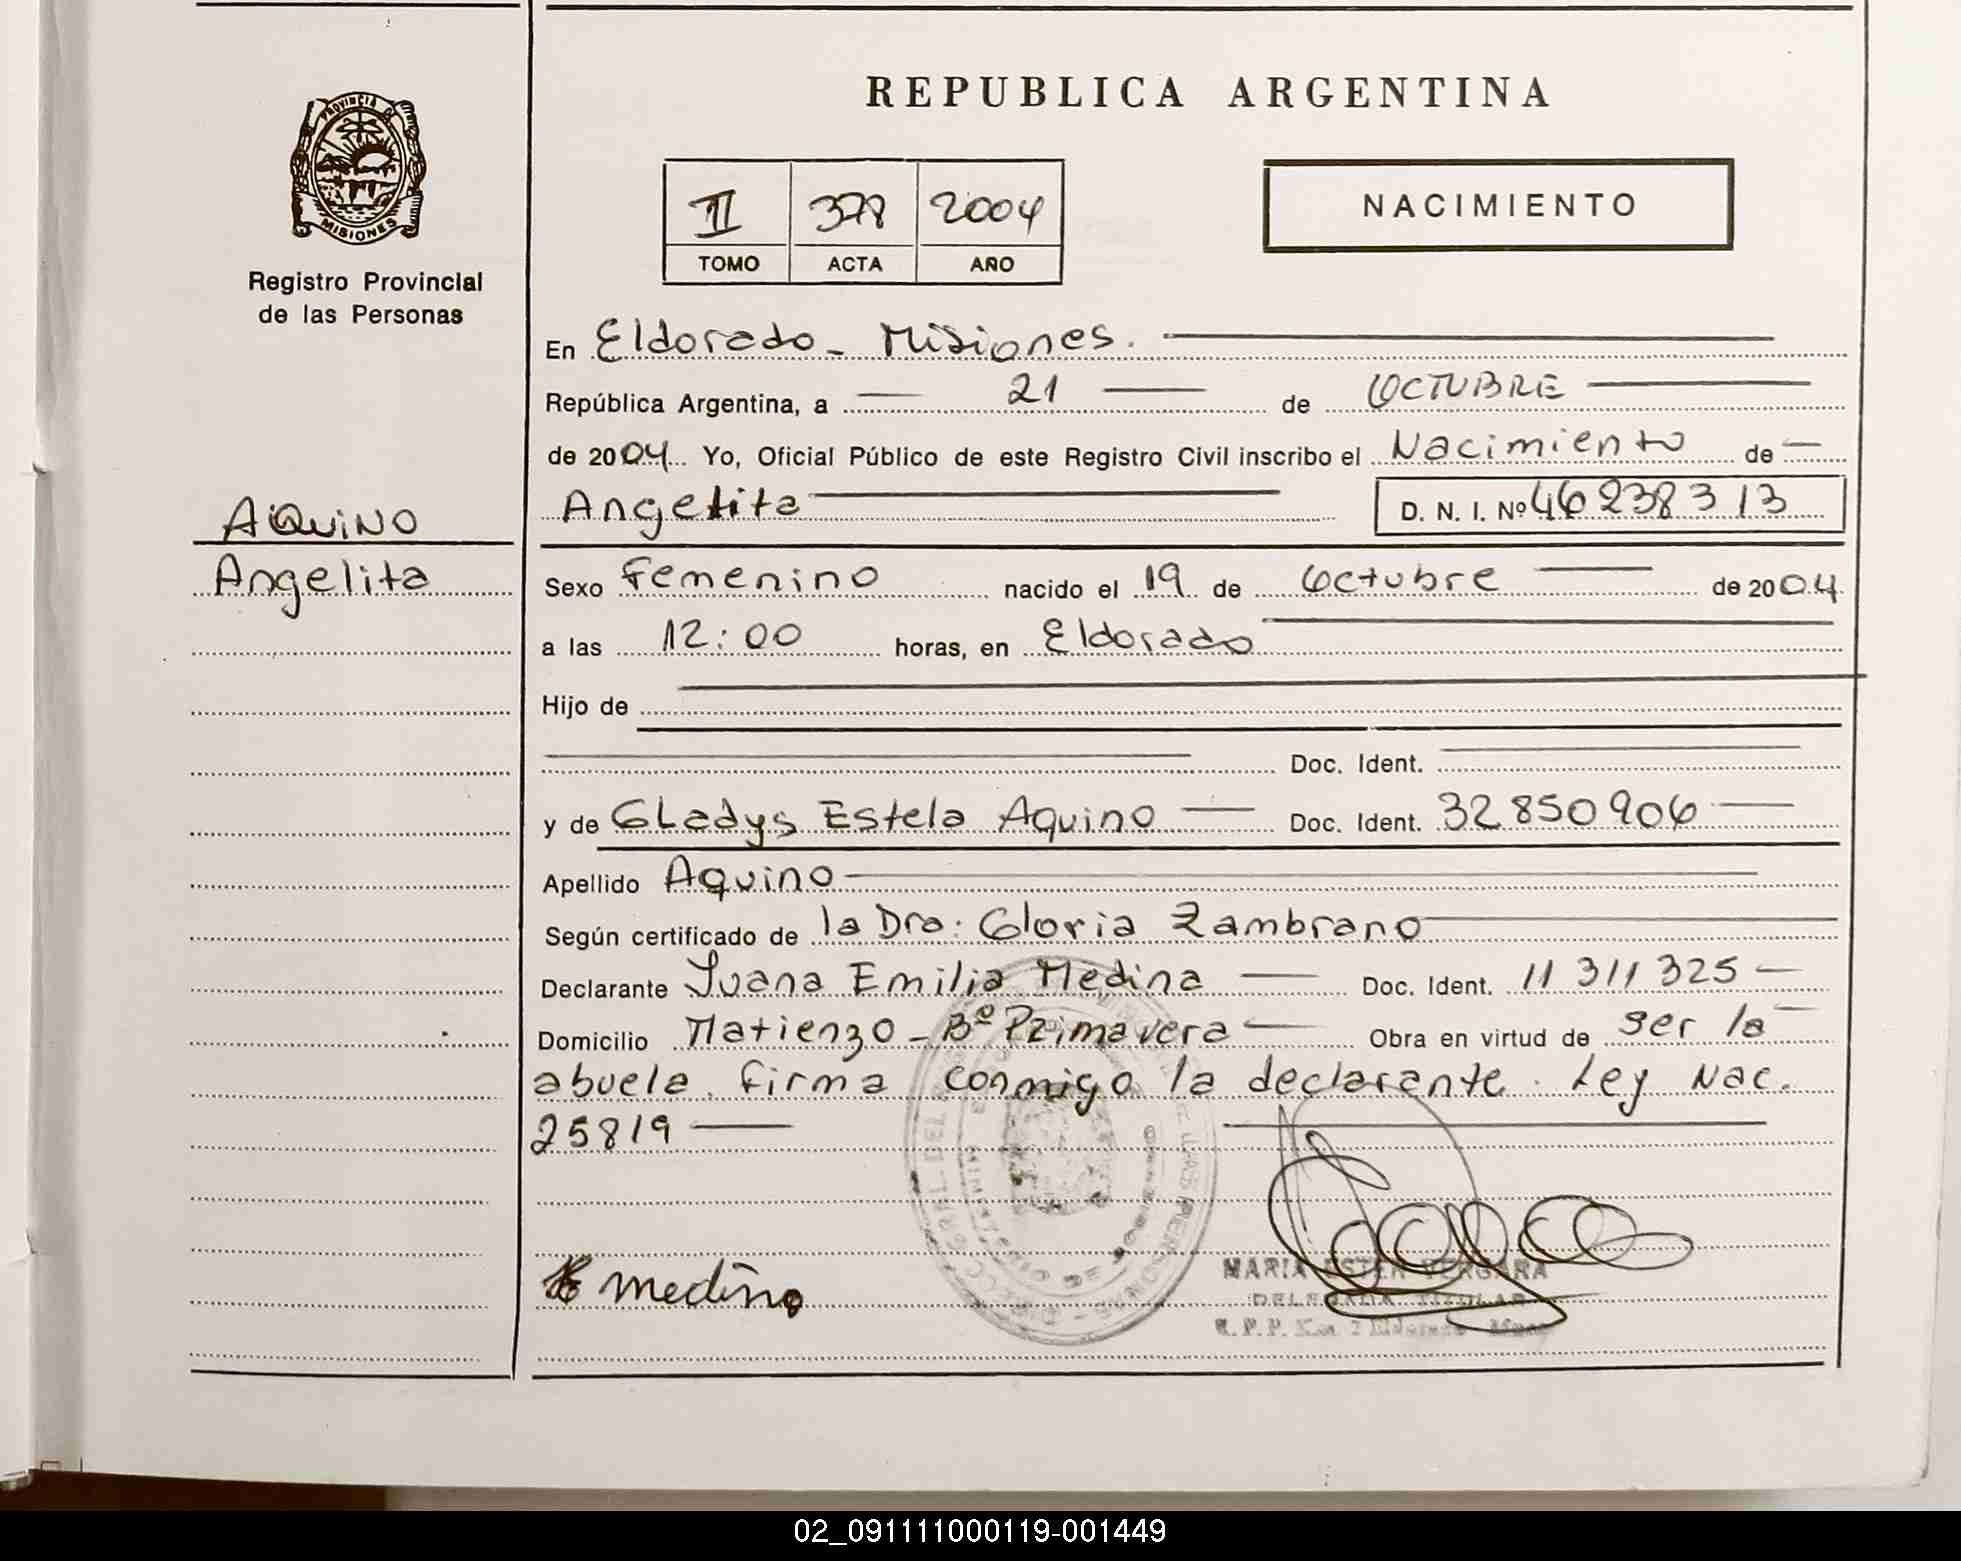 REPUBLICA ARGENTINA
PROVINCIA DE
MISIONES
Registro Provincial
de las Personas
II 378 2004
TOMO ACTA AÑO
NACIMIENTO
En Eldorado - Misiones.
República Argentina, a 21 de OCTUBRE
de 2004 Yo, Oficial Público de este Registro Civil inscribo el Nacimiento de
Angelita D. N. I. Nº 46238313
AQUINO
Angelita
Sexo Femenino nacido el 19 de Octubre de 2004
a las 12:00 horas, en Eldorado
Hijo de
Doc. Ident.
y de Gladys Estela Aquino Doc. Ident. 32850906
Apellido Aquino
Según certificado de la Dra. Gloria Zambrano
Declarante Juana Emilia Medina Doc. Ident. 11311325
Domicilio Matienzo - Bº Primavera Obra en virtud de ser la
abuela. firma conmigo la declarante. Ley Nac.
25819
Medina
MARIA ESTER VERGARA
DELEGADA TITULAR
02_091111000119-001449